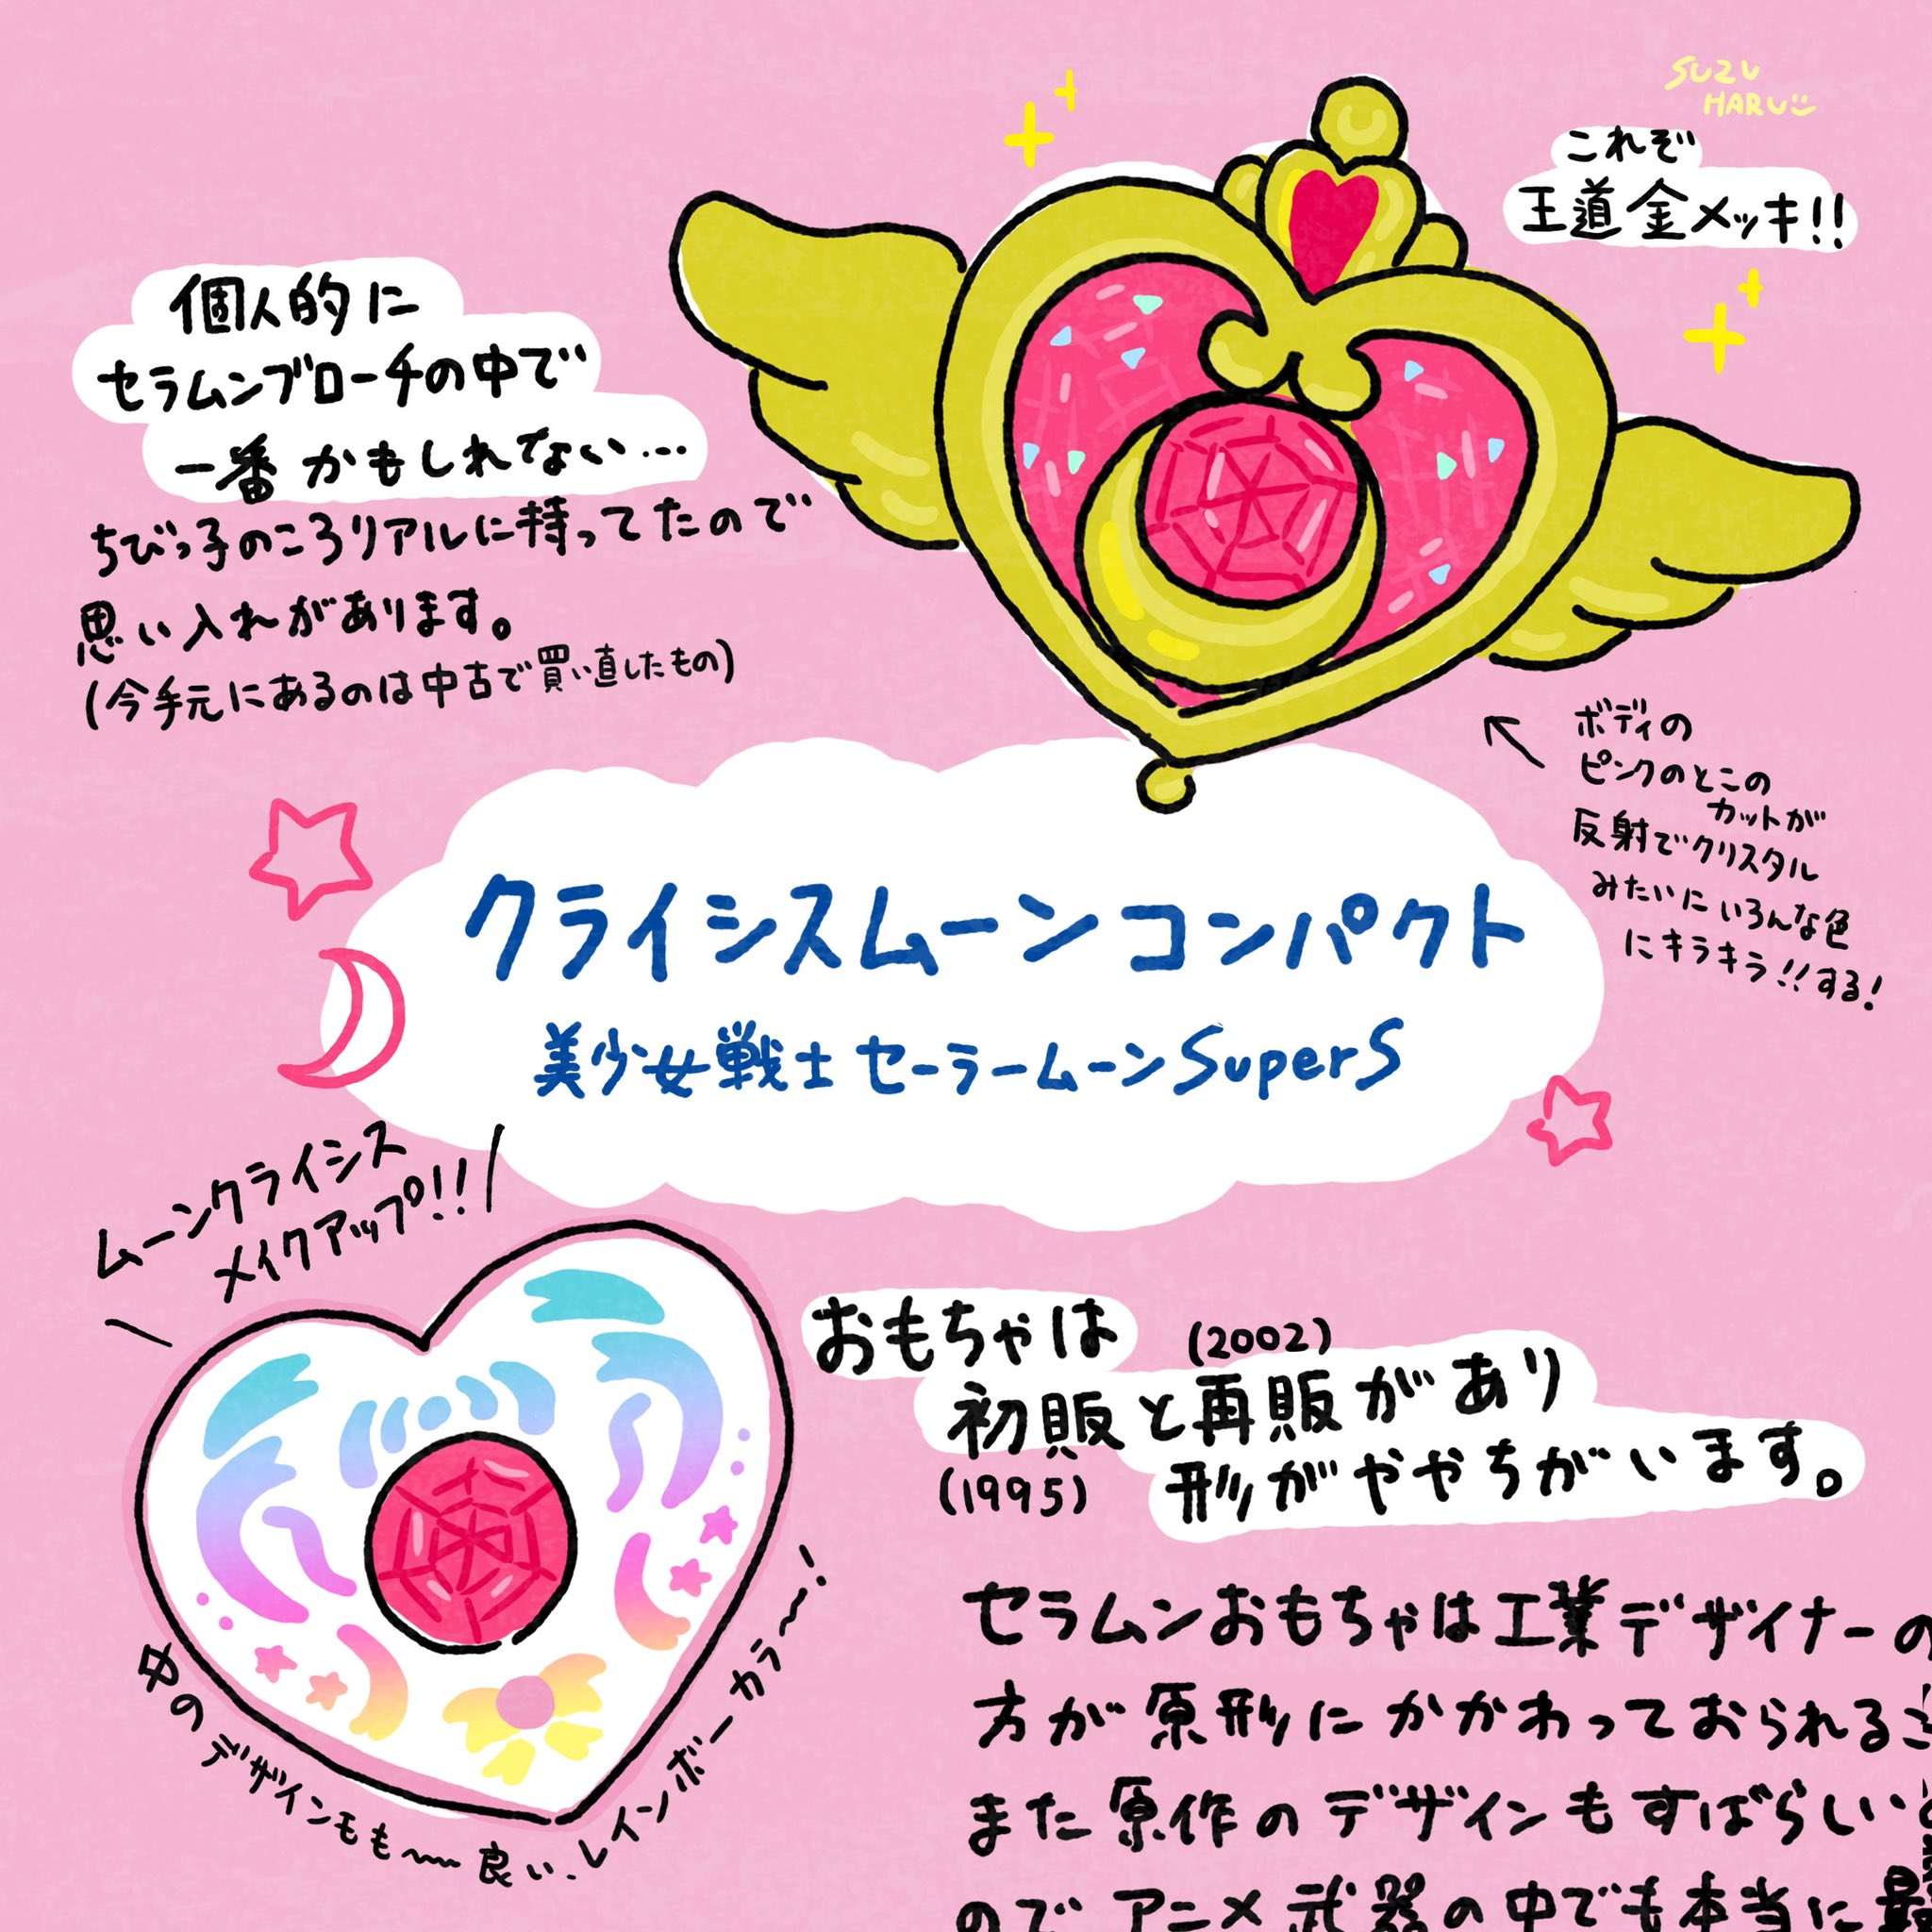 SUZU
HARU
これぞ
王道金メッキ!!
個人的に
セラムンブローチの中で
一番かもしれない…
ちびっ子のころリアルに持ってたので
思い入れがあります。
(今手元にあるのは中古で買い直したもの)
ボディの
ピンクのとこの
カットが
反射でクリスタル
みたいにいろんな色
にキラキラ!!する!
クライシスムーンコンパクト
美少女戦士セーラームーンSuperS
ムーンクライシス
メイクアップ!!
おもちゃは
(2002)
初販と再販があり
(1995)
形がややちがいます。
中のデザインもも〜良い、レインボーカラ〜!
セラムンおもちゃは工業デザイナーの
方が原形にかかわっておられる
また原作のデザインもすばらしい
のでアニメ武器の中でも本当に最